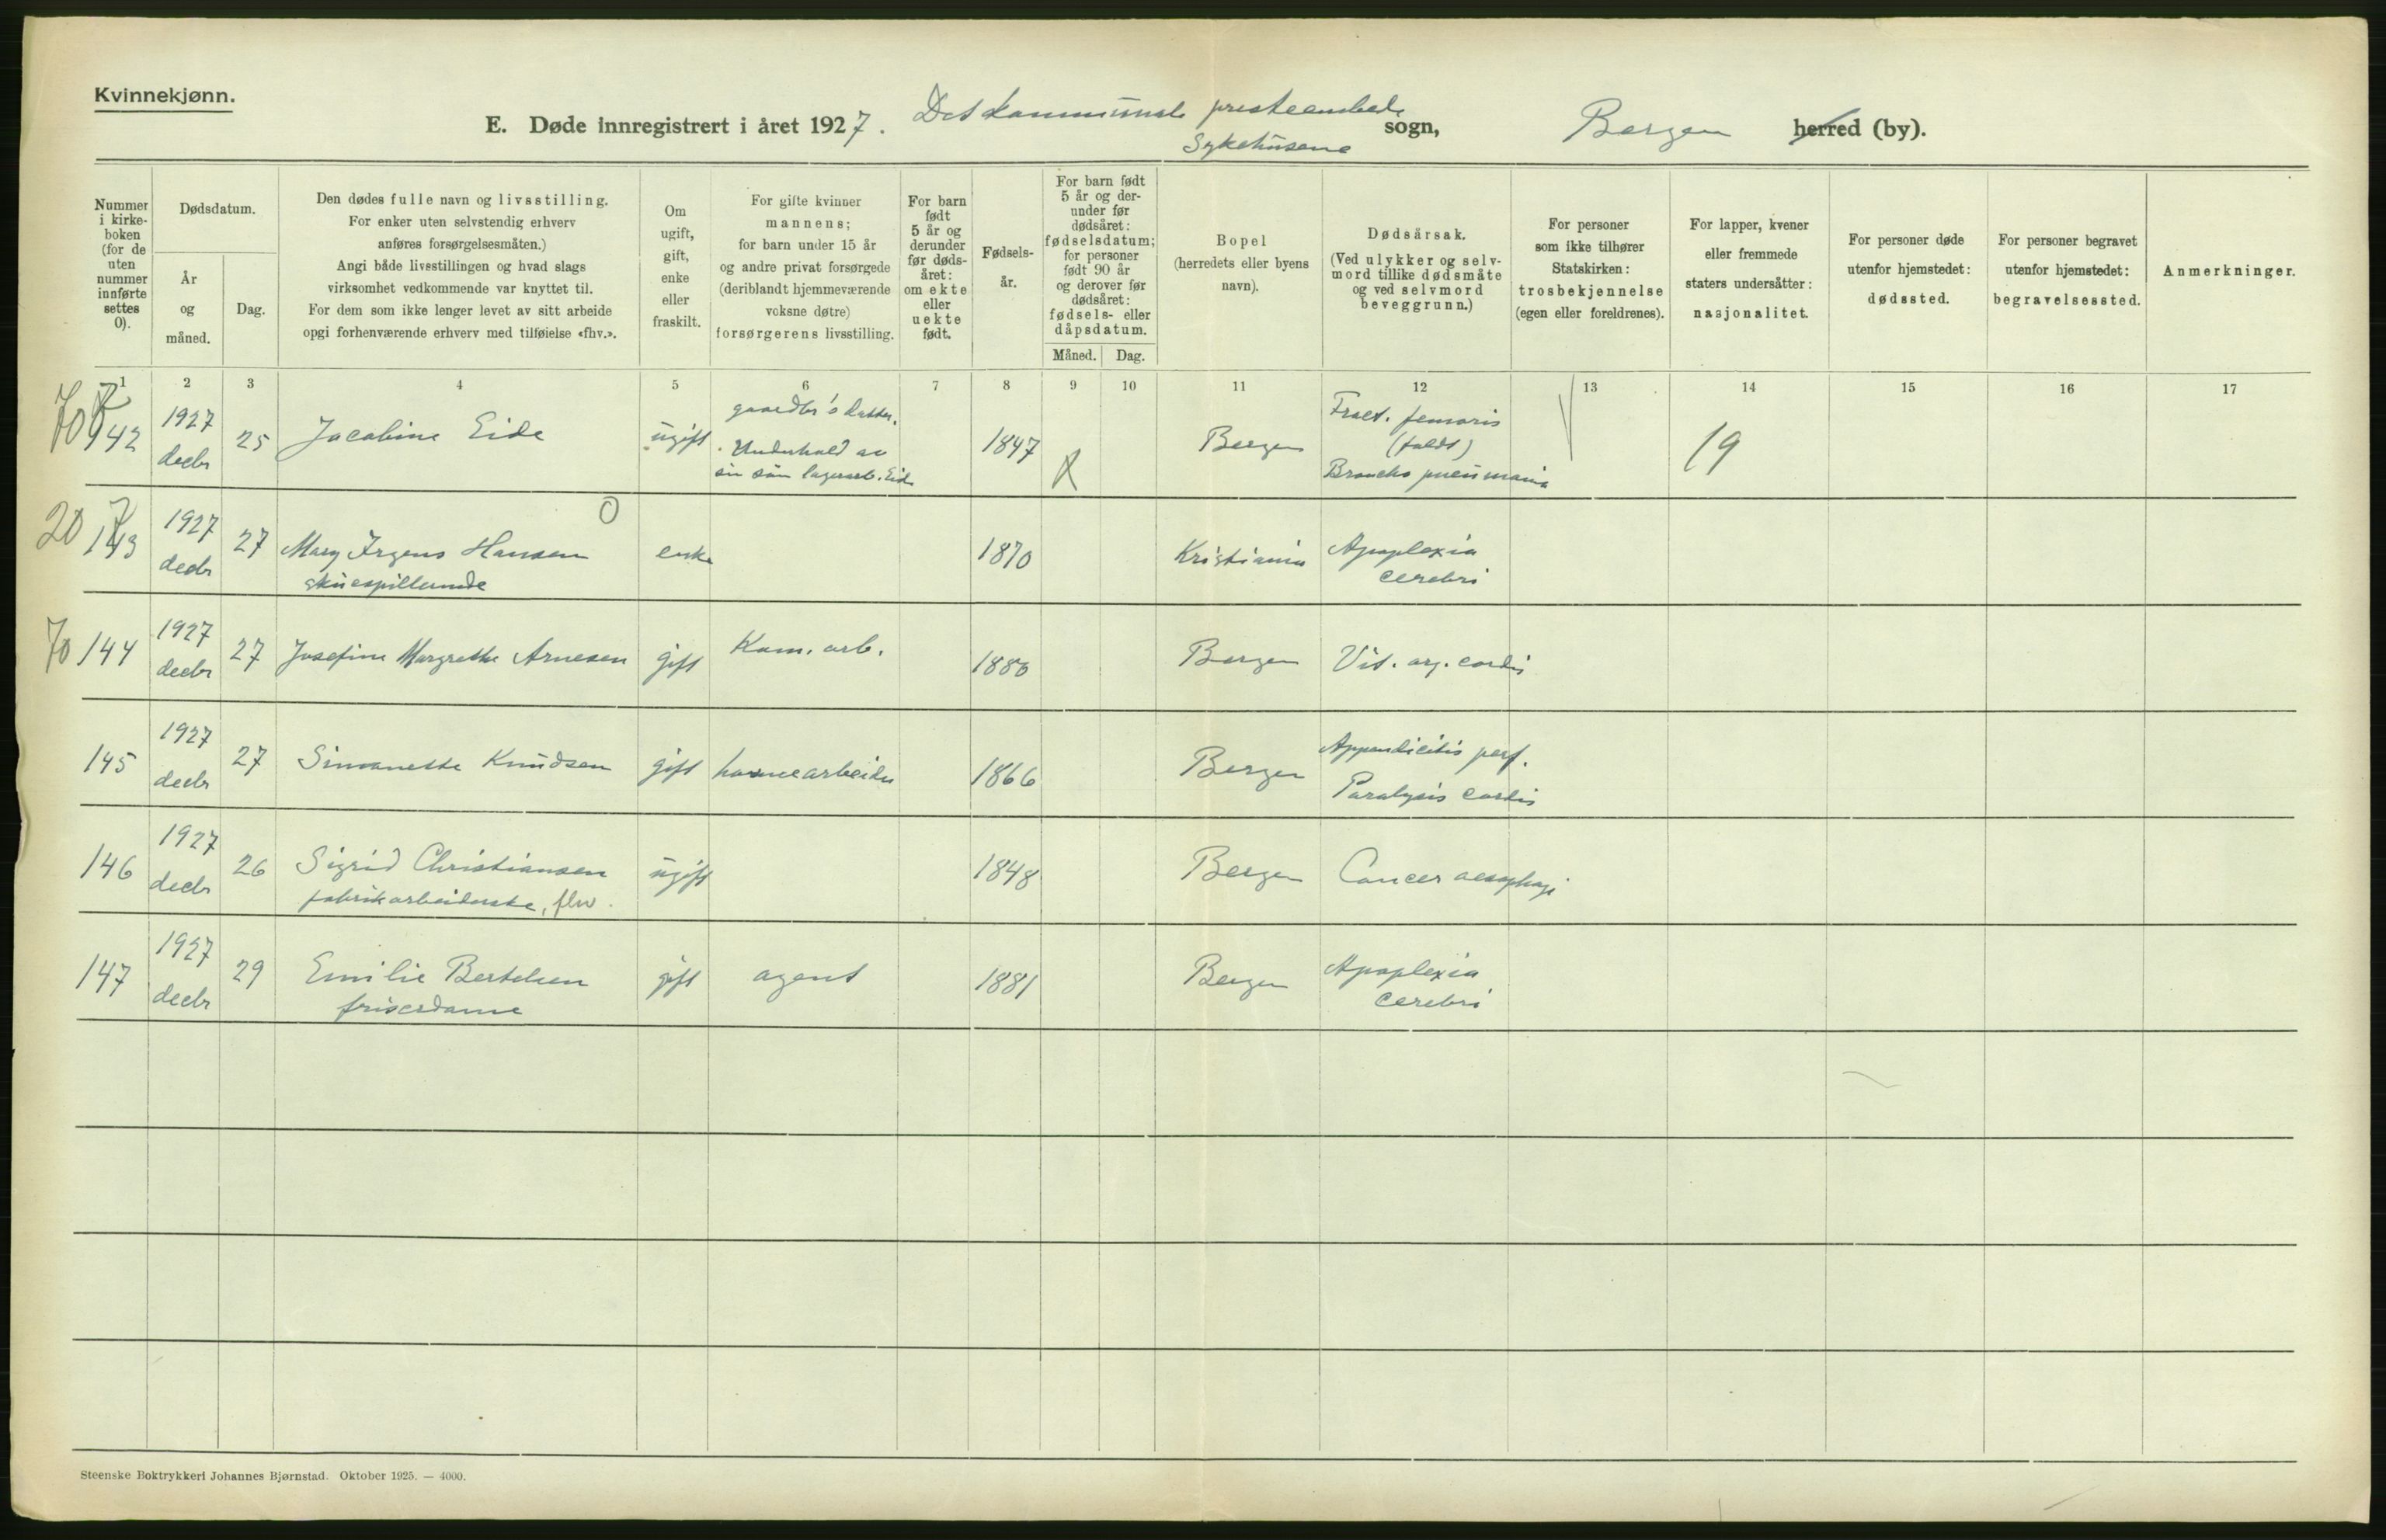 Kvinnekjønn.
E. Døde innregistrert i året 1927. Det kommunale presteembede sogn, Bergen herred (by).
Sykehusene
Nummer i kirkeboken (for de uten nummer innførte settes 0).
Dødsdatum.
År og måned.
Dag.
Den dødes fulle navn og livsstilling.
For enker uten selvstendig erhverv
anføres forsørgelsesmåten.)
Angi både livsstillingen og hvad slags
virksomhet vedkommende var knyttet til.
For dem som ikke lenger levet av sitt arbeide
opgi forhenværende erhverv med tilføielse «fhv.».
Om ugift, gift, enke eller fraskilt.
For gifte kvinner
mannens;
for barn under 15 år
og andre privat forsørgede
(deriblandt hjemmeværende
voksne døtre)
forsørgerens livsstilling.
For barn født 5 år og derunder før dødsåret: om ekte eller uekte født.
Fødselsår.
For barn født 5 år og derunder før dødsåret: fødselsdatum; for personer født 90 år og derover før dødsåret: fødsels- eller dåpsdatum.
Måned. Dag.
Bopel
(herredets eller byens
navn).
Dødsårsak.
(Ved ulykker og selvmord tillike dødsmåte og ved selvmord beveggrunn.)
For personer
som ikke tilhører
Statskirken:
trosbekjennelse
(egen eller foreldrenes).
For lapper, kvener
eller fremmede
staters undersåtter:
nasjonalitet.
For personer døde
utenfor hjemstedet:
dødssted.
For personer begravet
utenfor hjemstedet:
begravelsessted.
Anmerkninger.
1 2 3 4 5 6 7 8 9 10 11 12 13 14 15 16 17
70 142 1927 decbr 25 Jacobine Eide ugift gaardbr's datter. Underhold av sin søn lagerarb. Eide 1847 Bergen Fract. femoris (faldt) Broncho pneumonia 19
20 143 1927 decbr 27 Mary Irgens Hansen enke 1870 Kristiania Apoplexia cerebri
skuespillerinde
70 144 1927 decbr 27 Josefine Margrethe Arnesen gift Kom. arb. 1880 Bergen Vit. org. cordis
145 1927 decbr 27 Simonette Knudsen gift havnearbeider 1866 Bergen Appendicitis perf. Paralysis cordis
146 1927 decbr 26 Sigrid Christiansen ugift 1848 Bergen Cancer aesophagi
fabrikarbeiderske, fhv.
147 1927 decbr 29 Emilie Bertelsen gift agent 1881 Bergen Apoplexia cerebri
friserdame
Steenske Boktrykkeri Johannes Bjørnstad. Oktober 1925. — 4000.